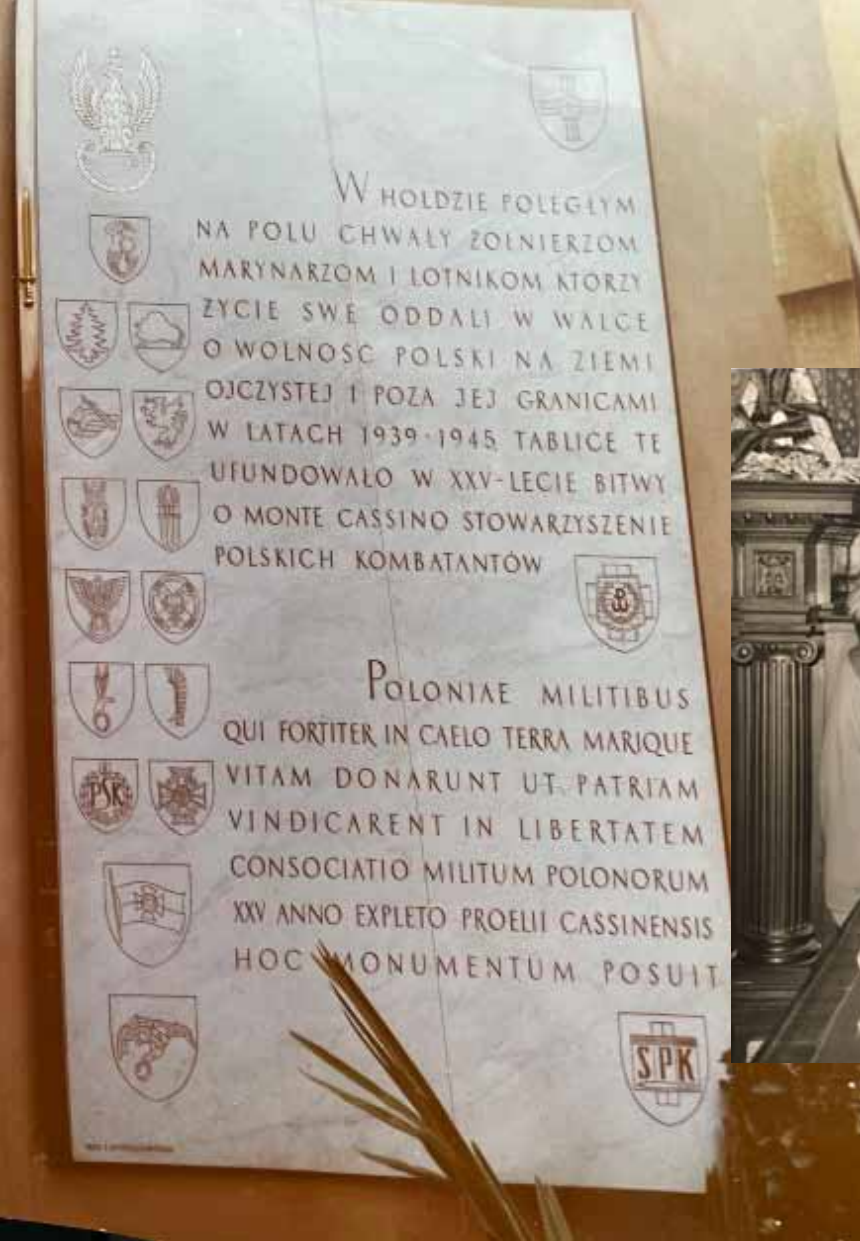 W HOŁDZIE POLEGŁYM
NA POLU CHWAŁY ŻOŁNIERZOM
MARYNARZOM I LOTNIKOM KTÓRZY
ŻYCIE SWE ODDALI W WALCE
O WOLNOŚĆ POLSKI NA ZIEMI
OJCZYSTEJ I POZA JEJ GRANICAMI
W LATACH 1939-1945 TABLICE TE
UFUNDOWAŁO W XXV-LECIE BITWY
O MONTE CASSINO STOWARZYSZENIE
POLSKICH KOMBATANTÓW
POLONIAE MILITIBUS
QUI FORTITER IN CAELO TERRA MARIQUE
VITAM DONARUNT UT PATRIAM
VINDICARENT IN LIBERTATEM
CONSOCIATIO MILITUM POLONORUM
XXV ANNO EXPLETO PROELII CASSINENSIS
HOC MONUMENTUM POSUIT
PSK
SPK